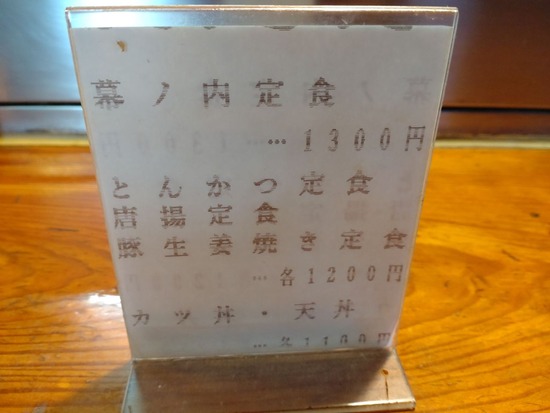 幕ノ内定食
…1300円
とんかつ定食
唐揚定食
豚生姜焼き定食
…各1200円
カツ丼・天丼
…各1100円